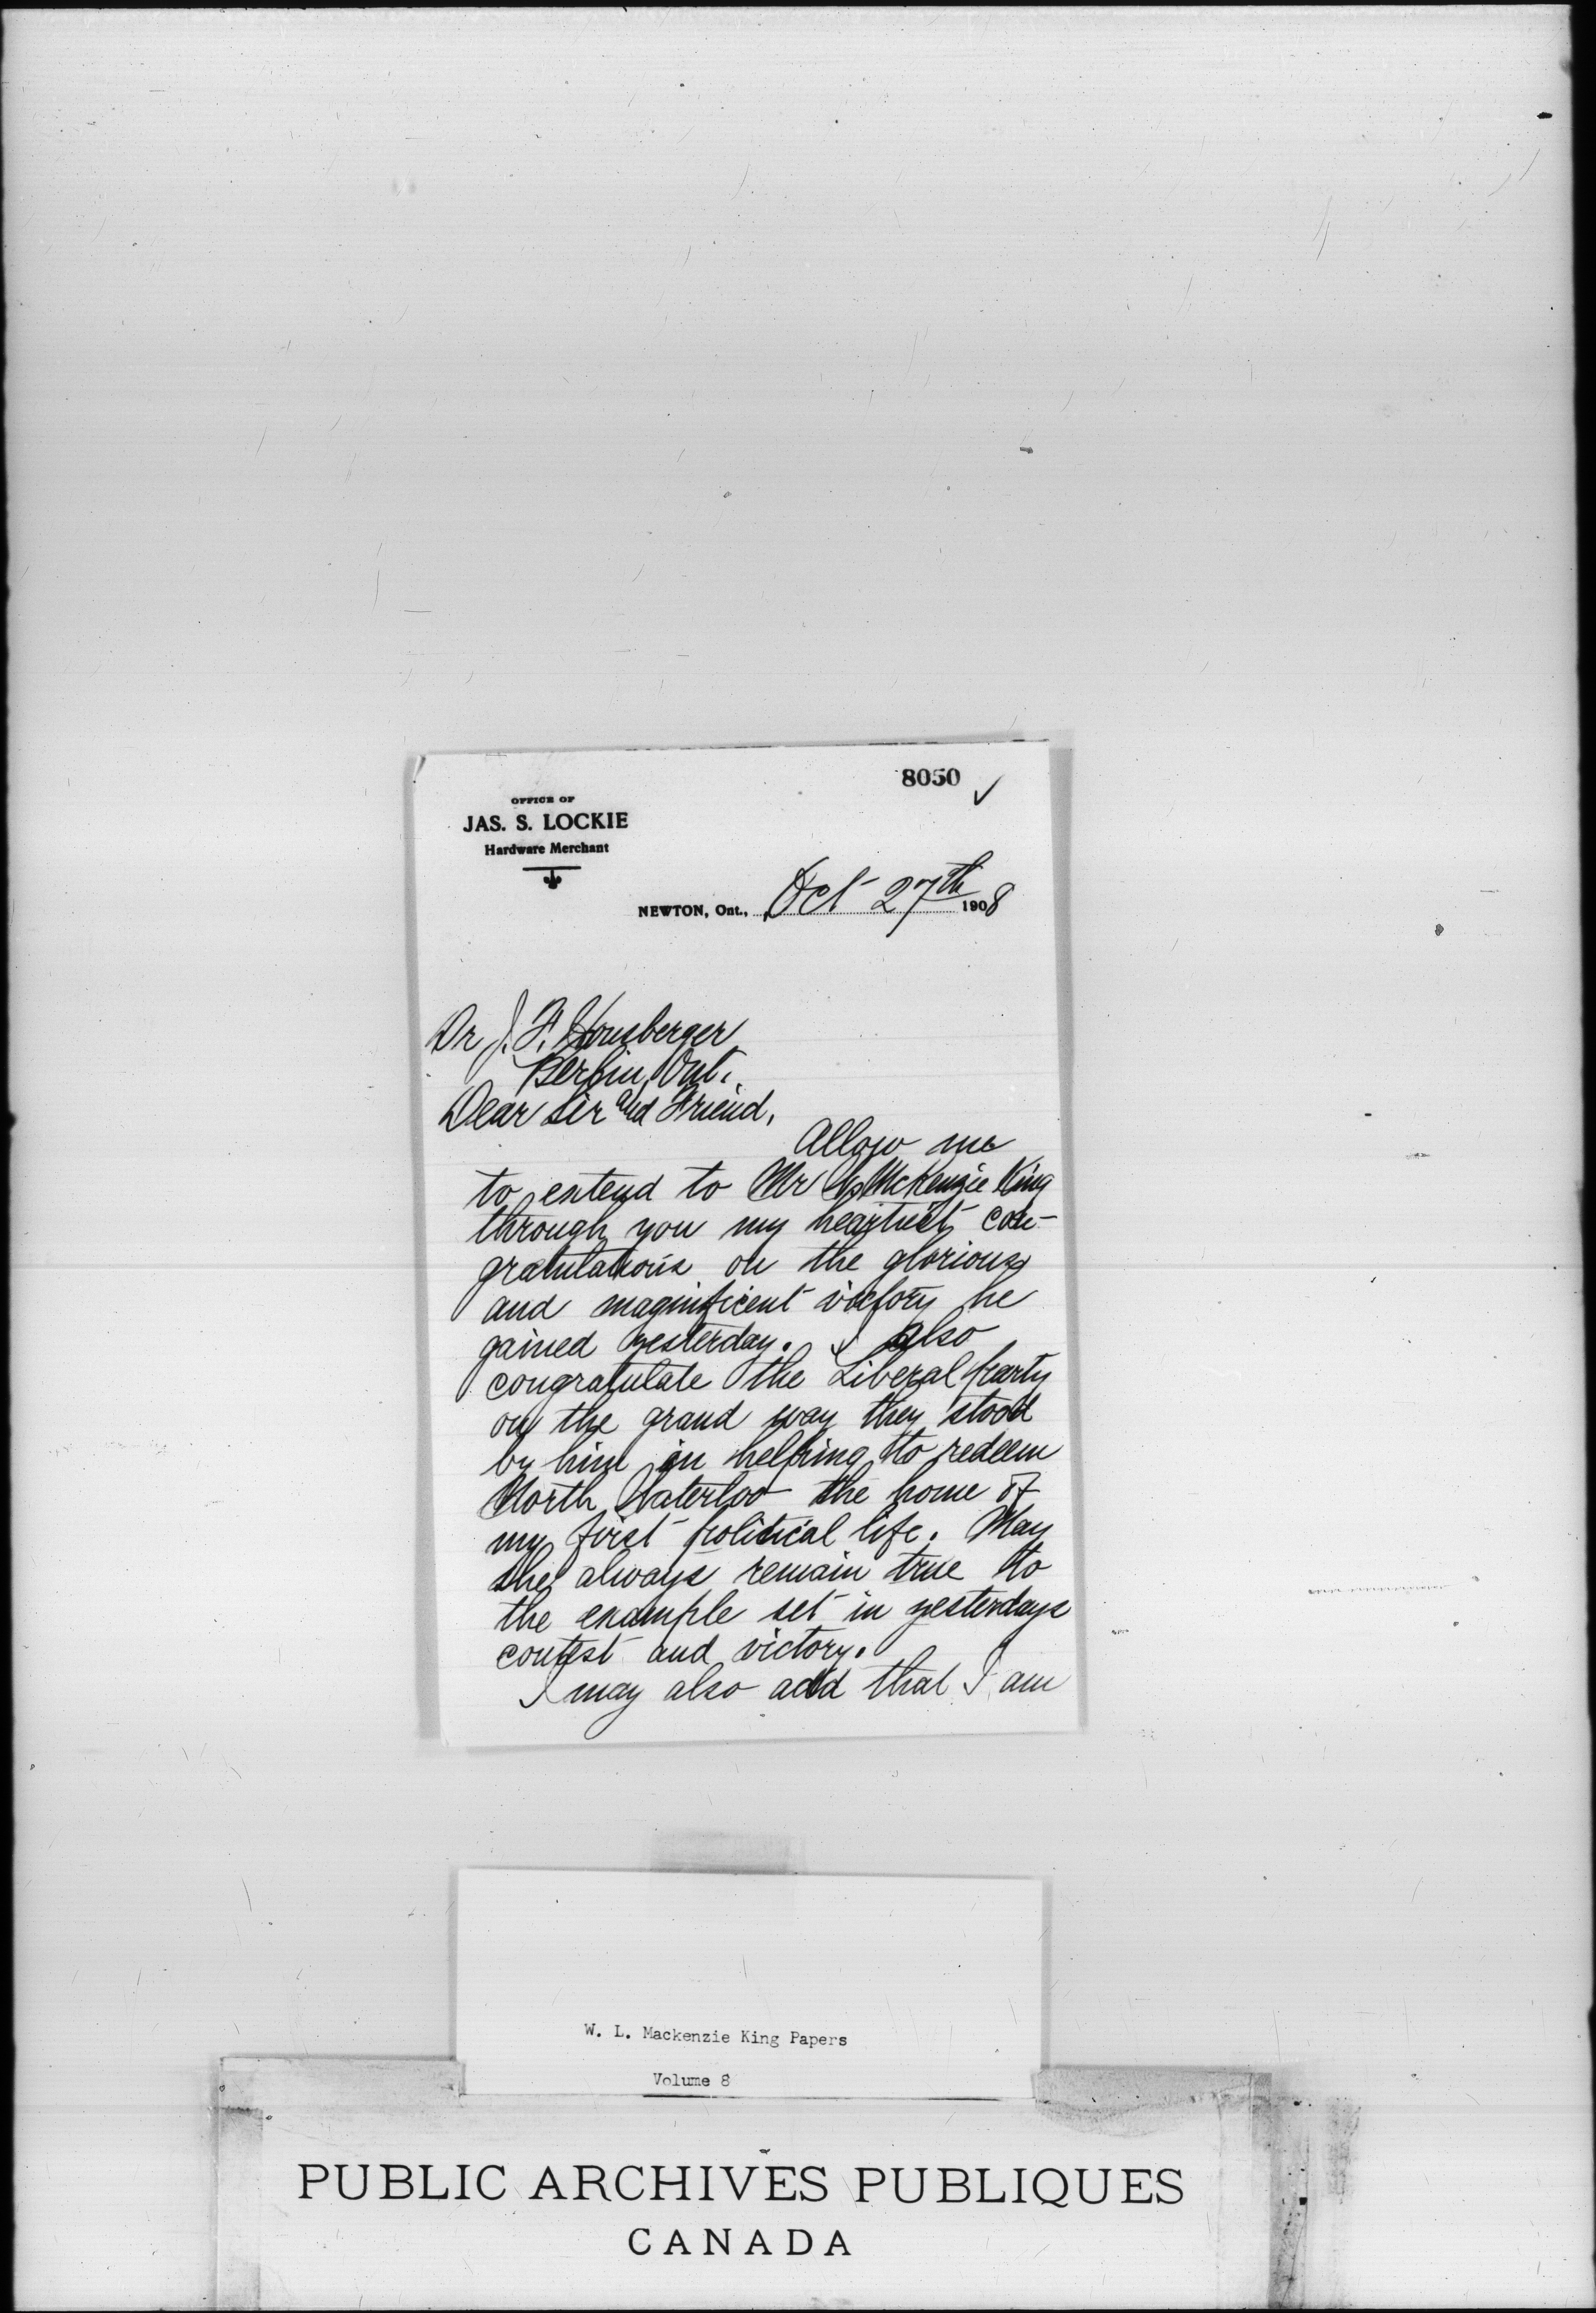 8050 ✓
OFFICE OF
JAS. S. LOCKIE
Hardware Merchant
NEWTON, Ont., Oct 27th 1908
Dr J. F. Honsberger
Berlin, Ont.
Dear Sir and Friend,
Allow me
to extend to Mr McKenzie King
through you my heartiest con-
gratulations on the glorious
and magnificent victory he
gained yesterday. I also
congratulate the Liberal party
on the grand way they stood
by him in helping to redeem
North Waterloo the home of
my first political life. May
she always remain true to
the example set in yesterdays
contest and victory.
I may also add that I am
W. L. Mackenzie King Papers
Volume 8
PUBLIC ARCHIVES PUBLIQUES
CANADA